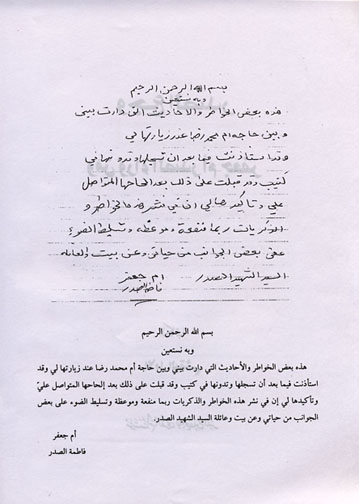 بسم الله الرحمن الرحيم
وبه نستعين
هذه بعض الخواطر والأحاديث التي دارت بيني
وبين حاجه ام محمد رضا عند زيارتها لي
وقد استأذنت فيما بعد ان تسجلها وتدونها في
كتيب وقد قبلت على ذلك بعد الحاحها المتواصل
علي وتأكيدها لي ان في نشر هذه الخواطر و
الذكريات ربما منفعة وموعظه وتسليط الضوء
على بعض الجوانب من حياتي وعن بيت وعائله
السيد الشهيد الصدر
ام جعفر
فاطمة الصدر
بسم الله الرحمن الرحيم
وبه نستعين
هذه بعض الخواطر والأحاديث التي دارت بيني وبين حاجة أم محمد رضا عند زيارتها لي وقد
استأذنت فيما بعد أن تسجلها وتدونها في كتيب وقد قبلت على ذلك بعد إلحاحها المتواصل عليّ
وتأكيدها لي إن في نشر هذه الخواطر والذكريات ربما منفعة وموعظة وتسليط الضوء على بعض
الجوانب من حياتي وعن بيت وعائلة السيد الشهيد الصدر.
أم جعفر
فاطمة الصدر